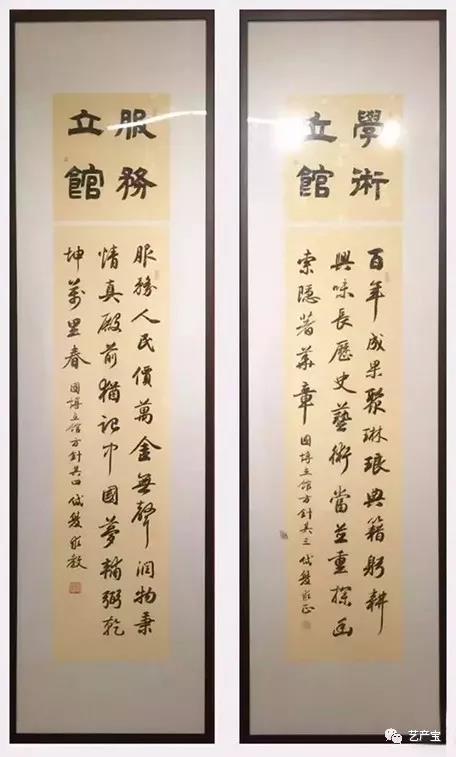 學術
立館
百年成果聚琳琅典籍躬耕
興味長歷史藝術當並重探幽
索隱著華章 國博立館方針其三
服務
立館
服務人民價萬金無聲潤物秉
情真殿前猶記中國夢輔弼乾
坤萬里春 國博立館方針其四
艺产宝